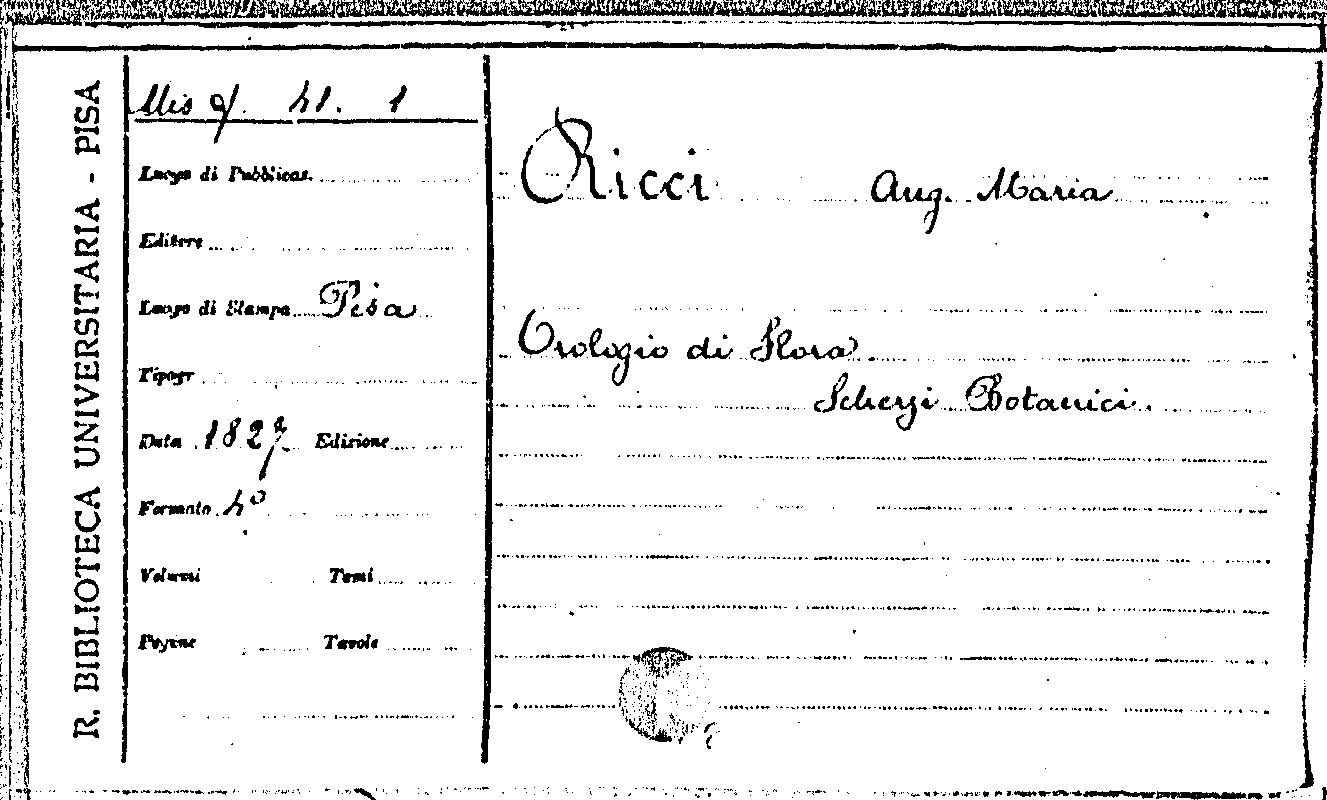 R. BIBLIOTECA UNIVERSITARIA - PISA
Misc. 41. 1
Luogo di Pubblicaz.
Editore
Luogo di Stampa Pisa
Tipogr
Data 1827 Edizione
Formato 4º
Volumi Tomi
Pagine Tavole
Ricci Ang. Maria
Orologio di Flora
Scherzi Botanici.